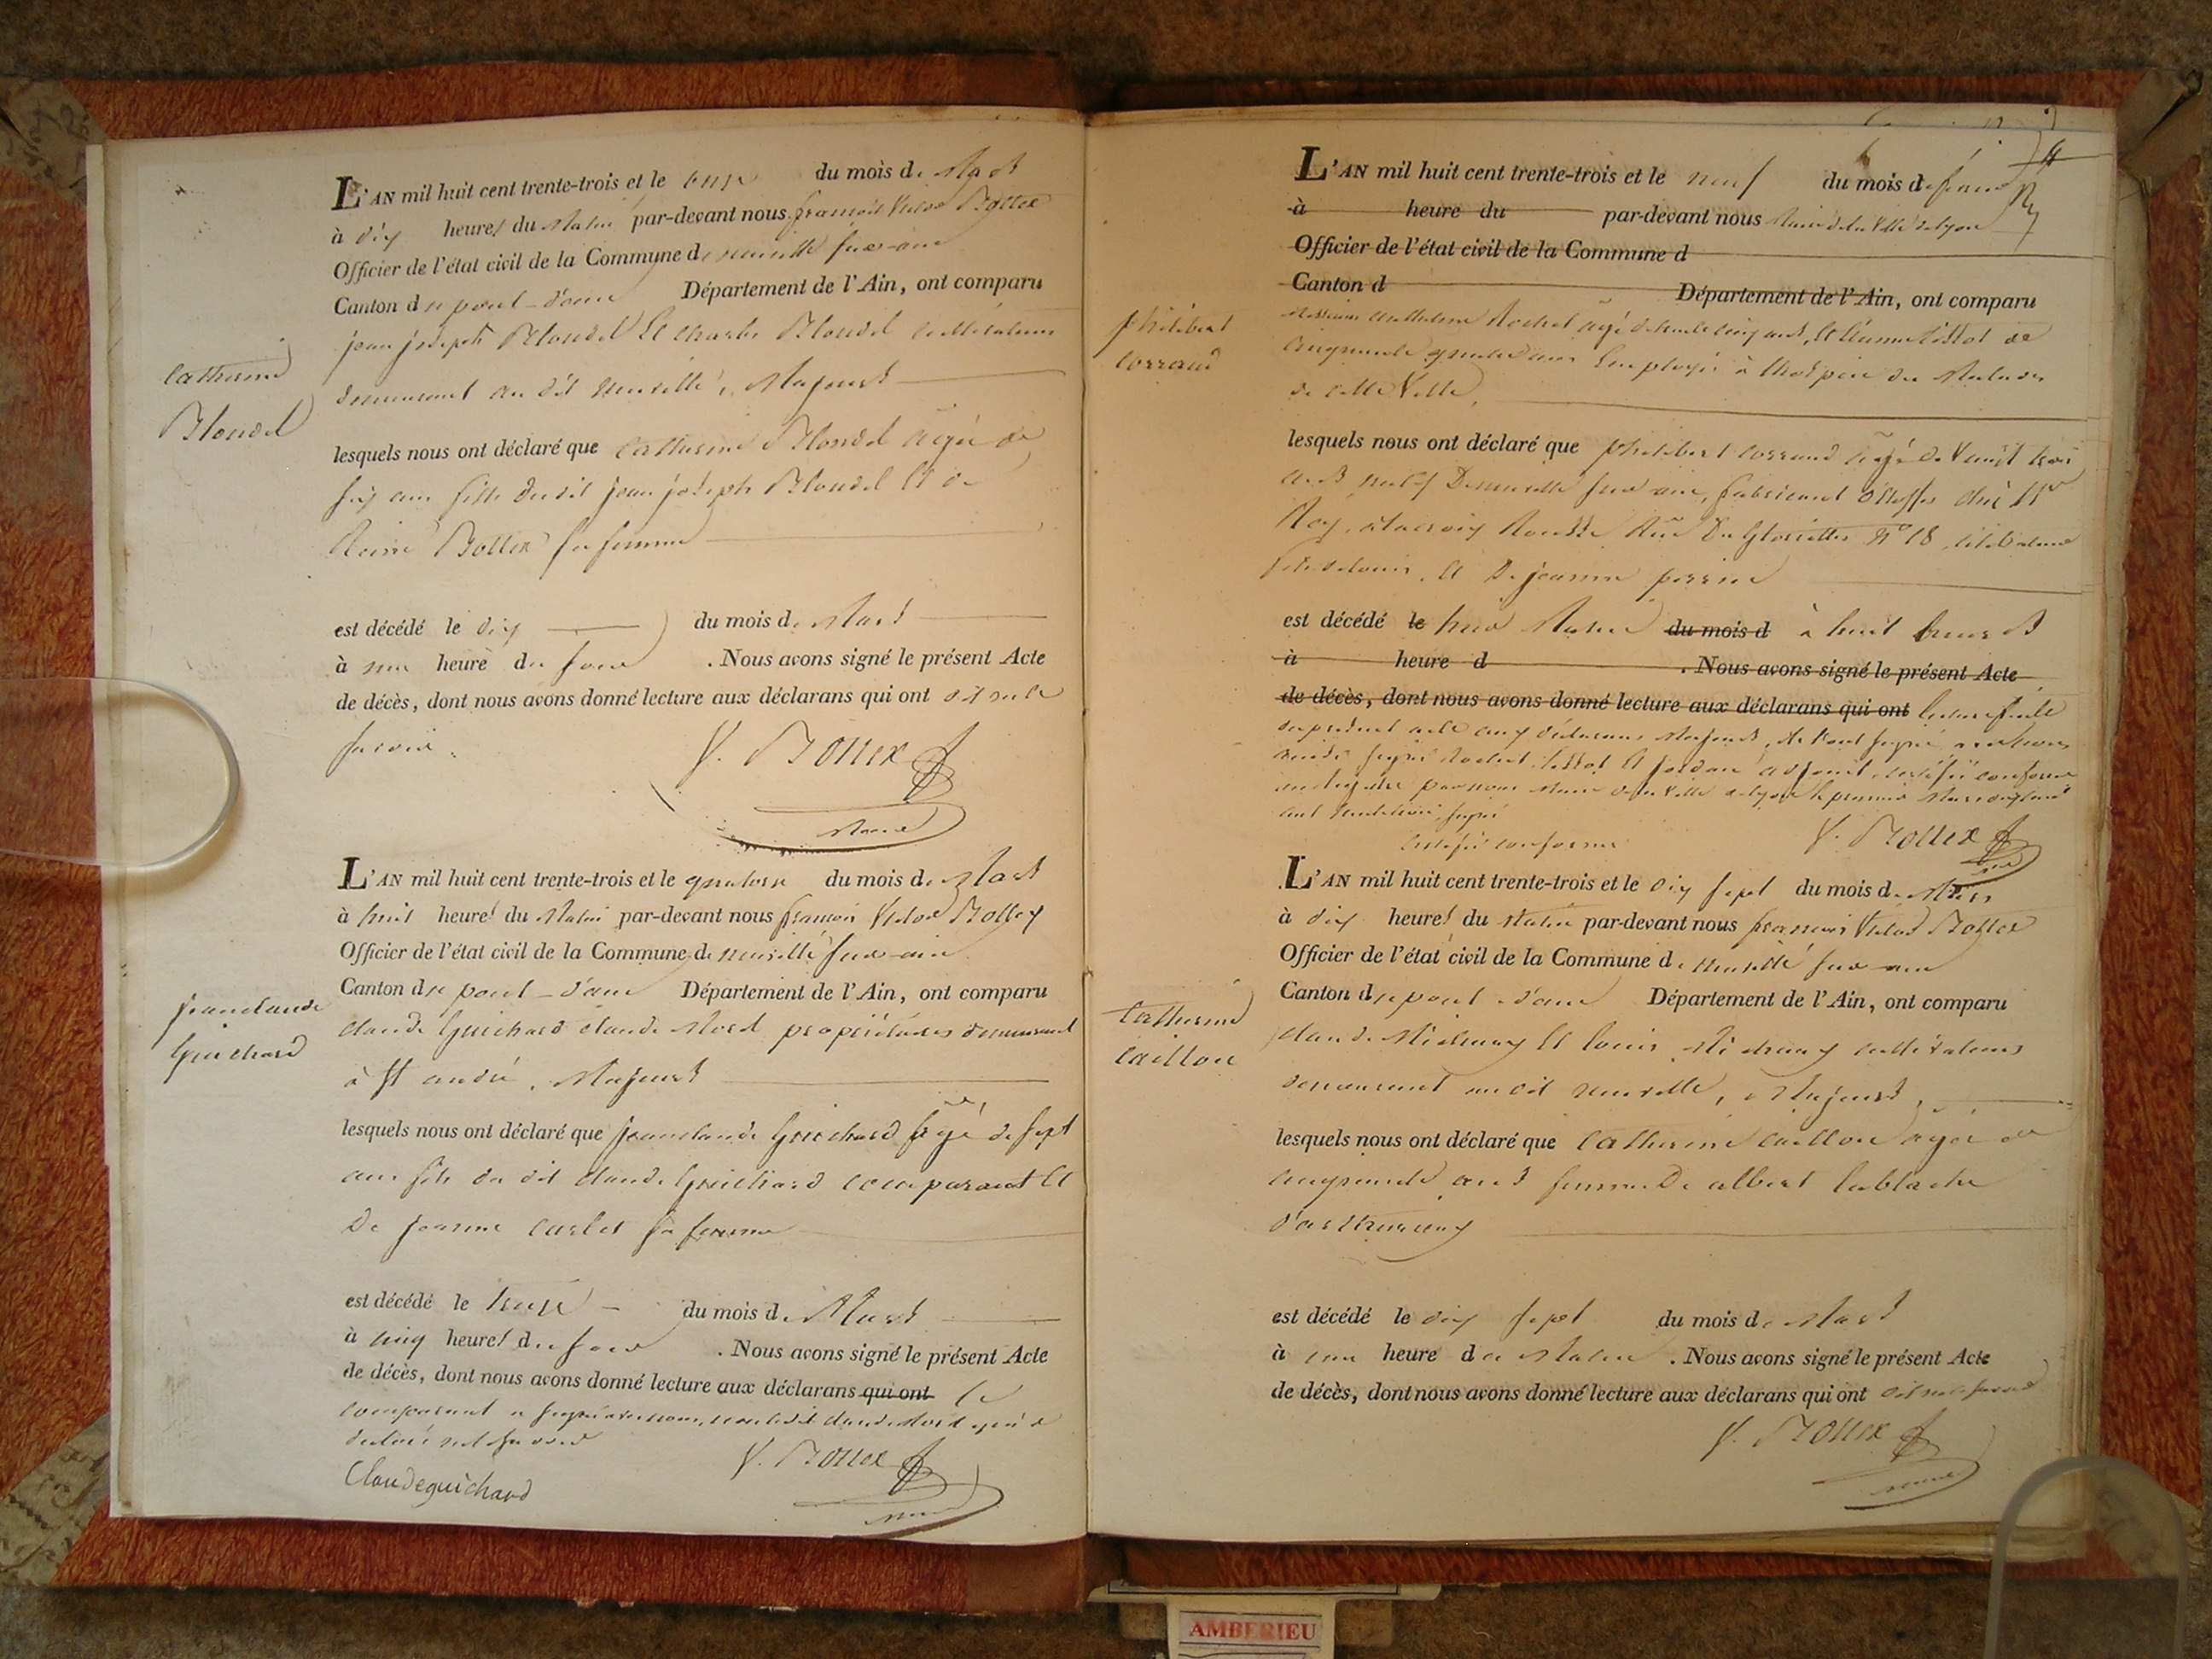 L'AN mil huit cent trente-trois et le onze du mois de Mars
à dix heures du Matin par-devant nous françois Victor Bollex
Officier de l'état civil de la Commune de neuville sur ain
Canton de pont-d'ain Département de l'Ain, ont comparu
jean joseph Blondel Et charles Blondel cultivateurs
demeurant au dit neuville, Majeurs
Catherine
Blondel
lesquels nous ont déclaré que Catherine Blondel agée de
six ans fille du dit jean joseph Blondel Et de
Reine Bollex sa femme
est décédé le dix du mois de Mars
à une heure du soir . Nous avons signé le présent Acte
de décès, dont nous avons donné lecture aux déclarans qui ont dit ne le
savoir.
V. Bollex
Maire
L'AN mil huit cent trente-trois et le quatorze du mois de Mars
à huit heures du Matin par-devant nous françois Victor Bollex
Officier de l'état civil de la Commune de neuville sur ain
Canton de pont-d'ain Département de l'Ain, ont comparu
jeanclaude
Guichard
claude Guichard claude Morel propriétaires demeurant
à St andré, Majeurs
lesquels nous ont déclaré que jeanclaude Guichard agé de sept
ans fils du dit claude Guichard comparant Et
De jeanne carlet sa femme
est décédé le treize du mois de Mars
à cinq heures du soir . Nous avons signé le présent Acte
de décès, dont nous avons donné lecture aux déclarans qui ont le
comparant a signé avec nous, non le dit claude Morel qui a
déclaré ne le savoir
V. Bollex
Claudeguichard
Maire
L'AN mil huit cent trente-trois et le neuf du mois de février
à heure du par-devant nous Maire de la Ville de lyon
Officier de l'état civil de la Commune d
Canton d Département de l'Ain, ont comparu
philibert
corraud
cinquante quatre ans Employés à l'hospice des Malades
de cette Ville,
lesquels nous ont déclaré que philibert corraud agé de Vingt trois
ans né à Neuville sur ain, fabricant d'étoffes chez Mr
Rey, à la croix Rousse Rue Du Gloriettes N° 18, célibataire
fils de louis, Et De jeanne perrier
est décédé le hier Matin du mois d à huit heures
à heure d . Nous avons signé le présent Acte
de décès, dont nous avons donné lecture aux déclarans qui ont lecture faite
du présent acte aux déclarans Majeurs, ils l'ont signé avec nous
certifié conforme
V. Bollex
L'AN mil huit cent trente-trois et le dix sept du mois de Mars
à dix heures du Matin par-devant nous francois Victor Bollex
Officier de l'état civil de la Commune de neuville sur ain
Canton de pont-d'ain Département de l'Ain, ont comparu
Catherine
Caillon
demeurant au dit neuville, Majeurs,
lesquels nous ont déclaré que Catherine caillon agée de
cinquante ans femme De albert lablache
est décédé le dix sept du mois de Mars
à une heure du Matin . Nous avons signé le présent Acte
de décès, dont nous avons donné lecture aux déclarans qui ont dit ne le savoir
V. Bollex
Maire
AMBERIEU